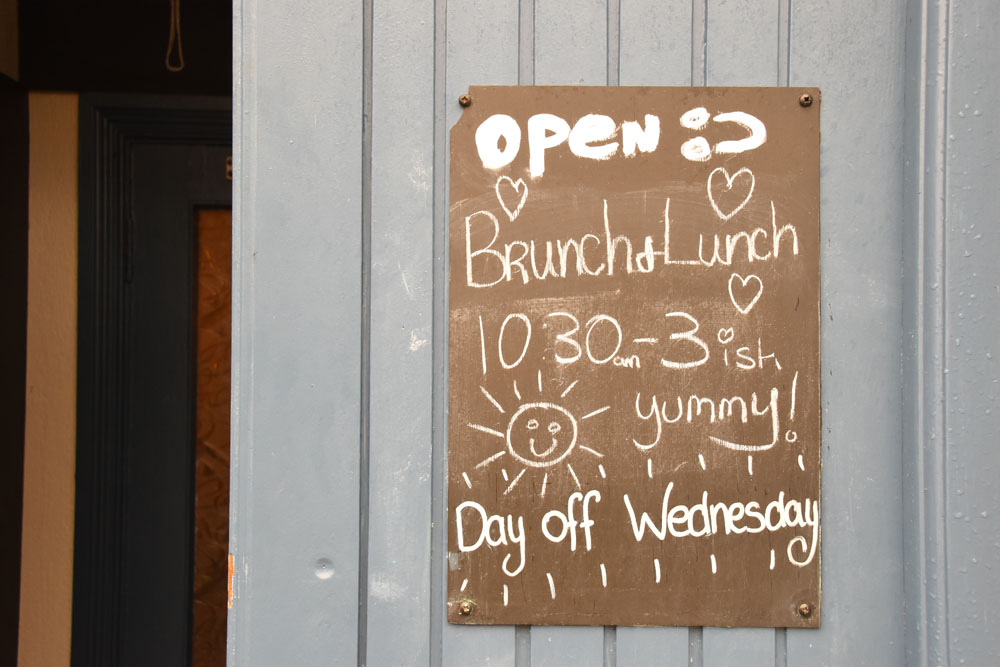 OPEN :)
Brunch & Lunch
10 30am - 3 ish
yummy!
Day off Wednesday